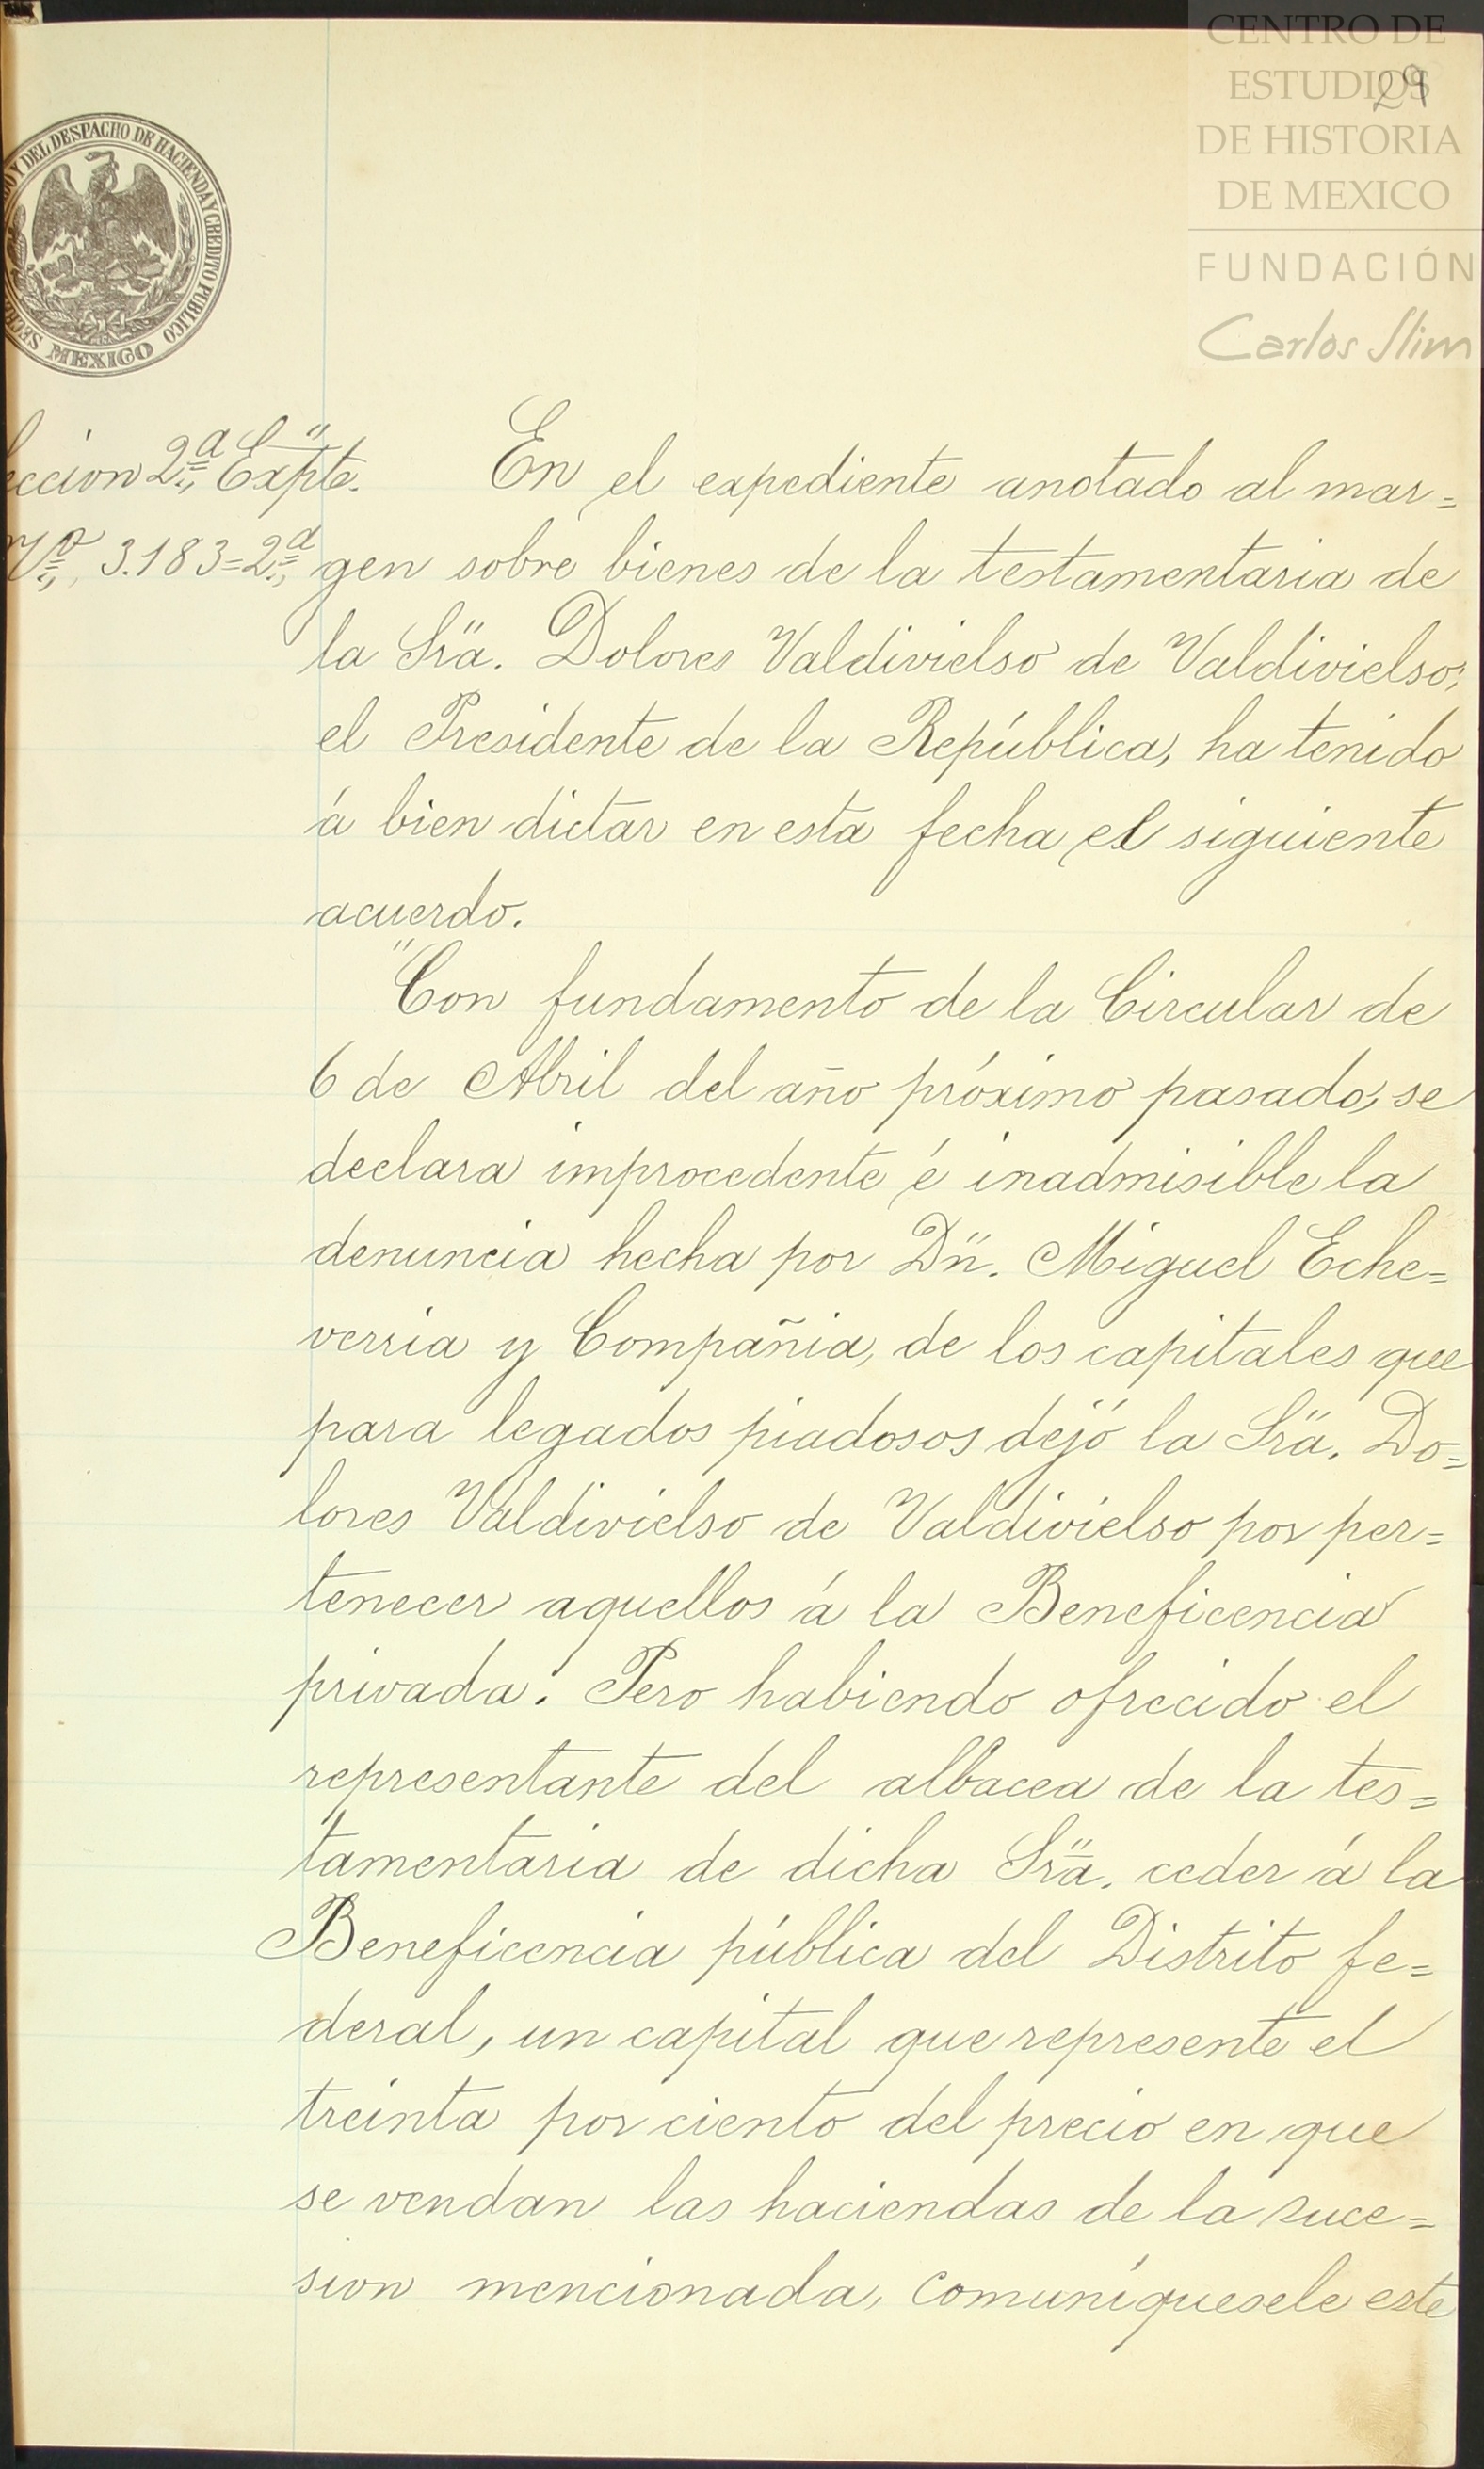 CENTRO DE
ESTUDIOS
DE HISTORIA
DE MEXICO
FUNDACIÓN
Carlos Slim
29
Y DEL DESPACHO DE HACIENDA Y CREDITO PUBLICO
MEXICO
eccion 2ª Expte.
Nº 3.183=2ª
En el expediente anotado al mar=
gen sobre bienes de la testamentaria de
la Srä. Dolores Valdivielso de Valdivielso,
el Presidente de la República, ha tenido
á bien dictar en esta fecha el siguiente
acuerdo.
"Con fundamento de la Circular de
6 de Abril del año próximo pasado, se
declara improcedente é inadmisible la
denuncia hecha por Dn̈. Miguel Eche=
verria y Compañia, de los capitales que
para legados piadosos dejó la Srä. Do=
lores Valdivielso de Valdivielso por per=
tenecer aquellos á la Beneficencia
privada. Pero habiendo ofrecido el
representante del albacea de la tes=
tamentaria de dicha Srä. ceder á la
Beneficencia pública del Distrito fe=
deral, un capital que represente el
treinta por ciento del precio en que
se vendan las haciendas de la suce=
sion mencionada, comuníquesele este